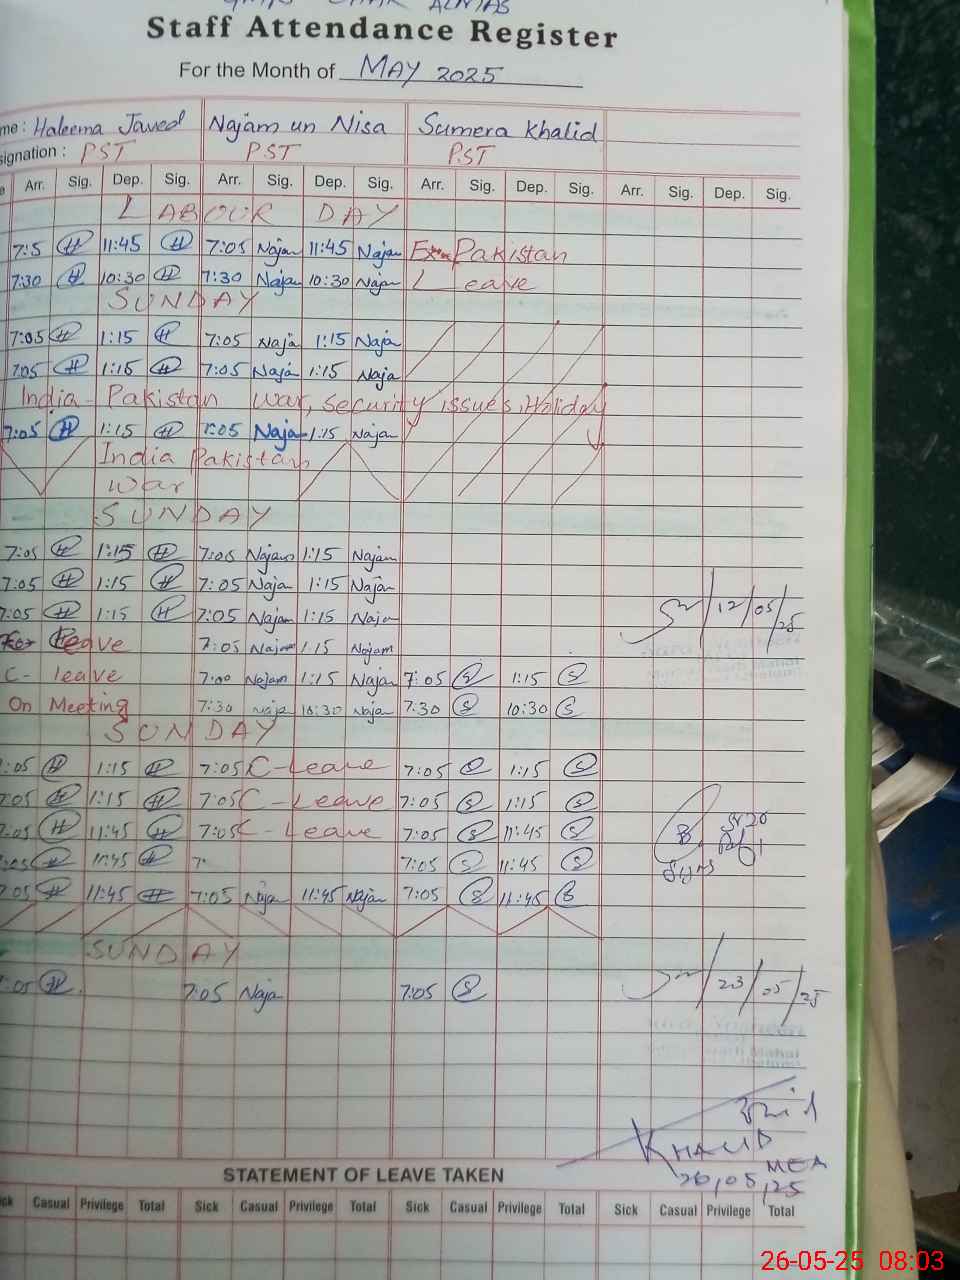 Staff Attendance Register
For the Month of MAY 2025
me : Haleema Javed Najam un Nisa Sumera Khalid
signation : PST PST PST
Arr. Sig. Dep. Sig. Arr. Sig. Dep. Sig. Arr. Sig. Dep. Sig. Arr. Sig. Dep. Sig.
LABOUR DAY
7:5 H 11:45 H 7:05 Naja 11:45 Naja Pakistan
7:30 H 10:30 H 7:30 Naja 10:30 Naja Leave
SUNDAY
7:05 H 1:15 H 7:05 Naja 1:15 Naja
7:05 H 1:15 H 7:05 Naja 1:15 Naja
India - Pakistan war, security issues, Holiday
7:05 H 1:15 H 7:05 Naja 1:15 Naja
India Pakistan
War
SUNDAY
7:05 H 1:15 H 7:05 Najam 1:15 Najam
7:05 H 1:15 H 7:05 Naja 1:15 Naja
7:05 H 1:15 H 7:05 Najam 1:15 Naja
12/05/25
Leave 7:05 Najam 1:15 Najam
C- leave 7:00 Najam 1:15 Naja 7:05 S 1:15 S
On Meeting 7:30 Naja 10:30 Naja 7:30 S 10:30 S
SUNDAY
:05 H 1:15 H 7:05 C-Leave 7:05 S 1:15 S
7:05 H 1:15 H 7:05 C-Leave 7:05 S 1:15 S
7:05 H 11:45 H 7:05 C-Leave 7:05 S 11:45 S
:05 H 11:45 H 7: 7:05 S 11:45 S
7:05 H 11:45 H 7:05 Naja 11:45 Naja 7:05 S 11:45 S
SUNDAY
:05 H 7:05 Naja 7:05 S
23/05/25
KHALID
MEA
26/05/25
STATEMENT OF LEAVE TAKEN
ick Casual Privilege Total Sick Casual Privilege Total Sick Casual Privilege Total Sick Casual Privilege Total
26-05-25 08:03